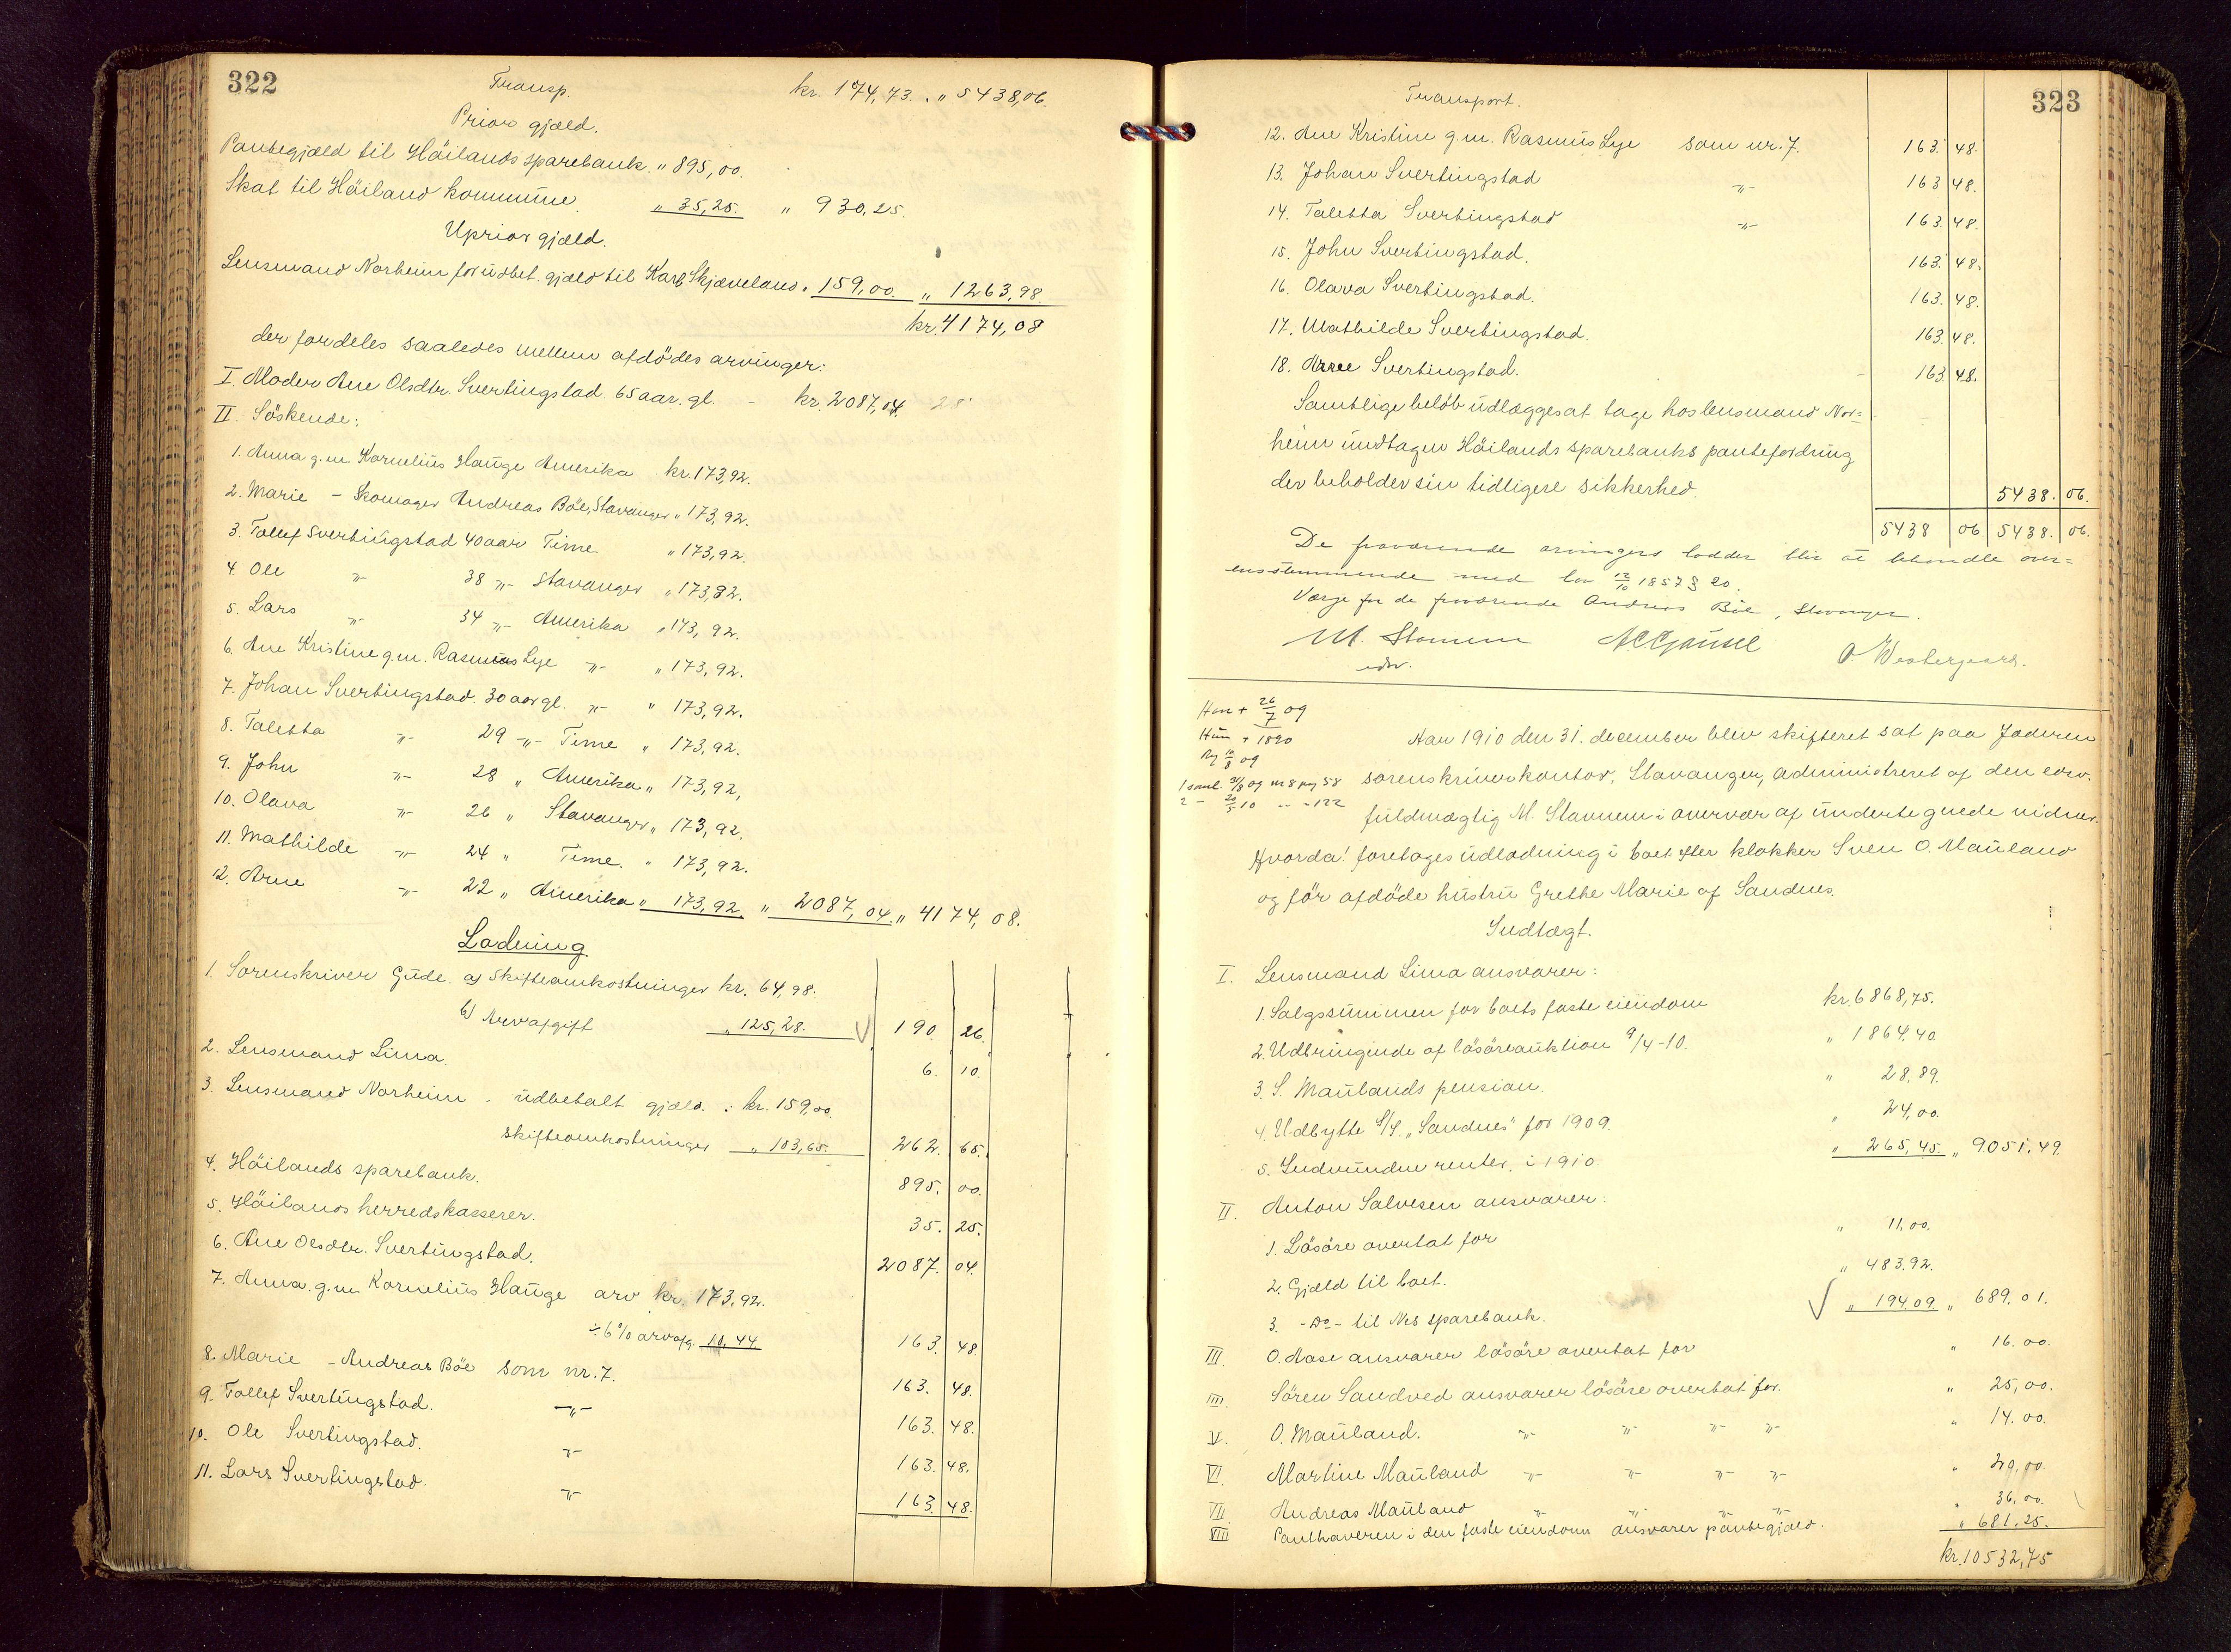 322
Transp. kr. 174,73. „ 5438,06.
Prior gjæld.
Pantegjæld til Höilands sparebank. „ 895,00.
Skat til Höiland kommune. „ 35,25. „ 930,25.
Uprior gjæld.
Lensmand Norheim for udbet. gjæld til Karl Skjæveland „ 159,00. „ 1263,98.
kr. 4174,08
der fordeles saaledes mellem afdödes arvinger:
I. Moder Ane Olsdtr. Svertingstad. 65 aar. gl. - kr. 2087,04.
II. Söskende:
1. Anna g.m. Kornelius Hauge Amerika kr. 173,92.
2. Marie - Skomager Andreas Böe, Stavanger „ 173,92.
3. Tollef Svertingstad 40 aar Time „ 173,92.
4. Ole -„- 38 -„- Stavanger „ 173,92.
5. Lars -„- 34 -„- Amerika „ 173,92.
6. Ane Kristine g.m. Rasmus Lye -„- „ 173,92.
7. Johan Svertingstad. 30 aar gl. -„- „ 173,92.
8. Taletta -„- 29 -„- Time „ 173,92.
9. John -„- 28 „ Amerika „ 173,92,
10. Olava -„- 26 „ Stavanger „ 173,92.
11. Mathilde -„- 24 „ Time. „ 173,92.
12. Arne -„- 22 „ Amerika „ 173,92. „ 2087,04. „ 4174,08.
Lodning
1. Sorenskriver Gude. a) Skifteomkostninger kr. 64,98.
b) Arvafgift „ 125,28. 190 26.
2. Lensmand Lima. 6. 10.
3. Lensmand Norheim. udbetalt gjæld. : kr. 159,00.
Skifteomkostninger „ 103,65. 262. 65.
4. Höilands sparebank. 895. 00.
5. Höilands herredskasserer. 35. 25.
6. Ane Olsdtr. Svertingstad. 2087. 04.
7. Anna. g.m. Kornelius Hauge arv kr. 173,92.
÷ 6% arvafg. 10,44 163. 48.
8. Marie - Andreas Böe som nr. 7. 163. 48.
9. Tollef Svertingstad. -„- 163. 48.
10. Ole Svertingstad. -„- 163. 48.
11. Lars Svertingstad. -„- 163. 48.
323
Transport.
12. Ane Kristine g.m. Rasmus Lye som nr. 7. 163. 48.
13. Johan Svertingstad -„- 163 48.
14. Taletta Svertingstad -„- 163. 48.
15. John Svertingstad. 163. 48.
16. Olava Svertingstad. 163. 48.
17. Mathilde Svertingstad. 163. 48.
18. Arne Svertingstad. 163. 48.
Samtlige belöb udlægges at tage hos lensmand Nor=
heim undtagen Höilands sparebanks pantefordring
der beholder sin tidligere sikkerhed. 5438. 06.
5438 06 5438. 06.
De fraværende arvingers lodder blir at behandle over=
ensstemmende med lov 12/10 1857 § 20.
Værge for de fraværende Andreas Böe, Stavanger.
M. Stavnem O. Westergaard.
edsv.
Han + 26/7 09
Hun + 1890
Reg 10/8 09
1 saml. 31/8 09 nr 8 pag 58
2 - 20/5 10 - - 122
Aar 1910 den 31. december blev skifteret sat paa Jæderen
sorenskriverkontor, Stavanger, administreret af den edsv.
fuldmægtig M. Stavnem i overvær af undertegnede vidner.
Hvorda! foretages udlodning i boet efter klokker Sven O. Mauland
og för afdöde hustru Grethe Marie af Sandnes.
Indtægt.
I. Lensmand Lima ansvarer:
1. Salgssummen for boets faste eiendom kr. 6868,75.
2. Udbringende af lösöreauktion 9/4-10. „ 1864,40.
3. S. Maulands pension. „ 28,89.
4. Udbytte A/S. „Sandnes" for 1909. „ 24,00.
5. Indvundne renter. i 1910. „ 265,45. „ 9051,49.
II. Anton Salvesen ansvarer:
1. Lösöre overtat for „ 11,00.
2. Gjæld til boet. „ 483,92.
3. -Do- til Nes sparebank. „ 194,09. „ 689,01.
III. O. Aase ansvarer lösöre overtat for „ 16,00.
IIII. Sören Sandved ansvarer lösöre overtat for. „ 25,00.
V. O. Mauland. -„- -„- -„- -„- „ 14,00.
VI. Martine Mauland -„- -„- -„- -„- „ 20,00.
VII Andreas Mauland -„- -„- -„- -„- „ 36,00.
VIII Panthaveren i den faste eiendom ansvarer pantegjæld. „ 681,25.
kr. 10532,75